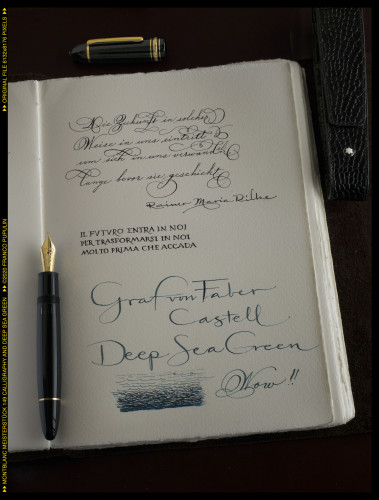 Die Zukunft in solcher
Weise in uns eintritt
um sich in uns verwandeln
lange bevor sie geschieht
Rainer Maria Rilke
IL FVTVRO ENTRA IN NOI
PER TRASFORMARSI IN NOI
MOLTO PRIMA CHE ACCADA
Graf von Faber
Castell
Deep Sea Green
Wow!!
MONTBLANC MEISTERSTÜCK 149 CALLIGRAPHY AND DEEP SEA GREEN ©2020 FRANCO PUPULIN ORIGINAL FILE 6132x8176 PIXELS